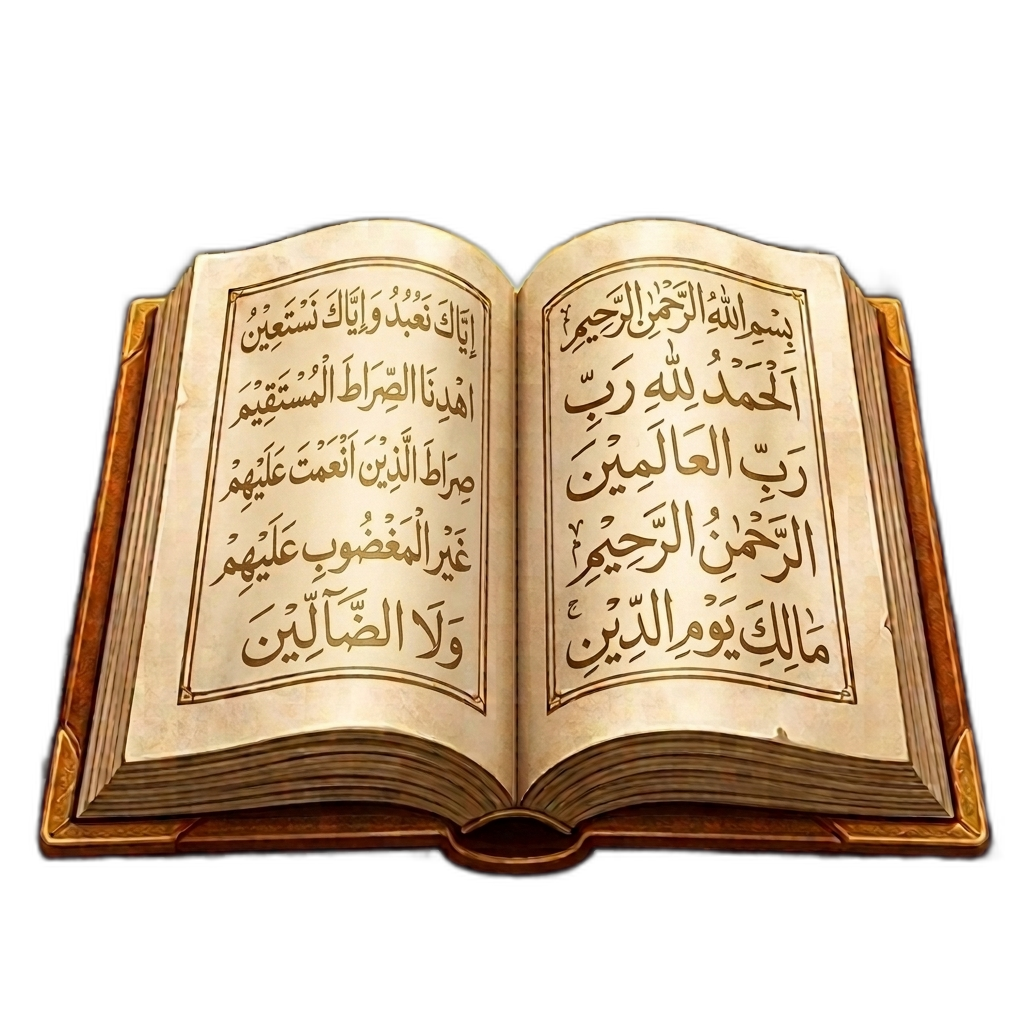 بِسْمِ اللّٰهِ الرَّحْمٰنِ الرَّحِيمِ
اَلْحَمْدُ لِلّٰهِ رَبِّ
رَبِّ العَالَمِينَ
الرَّحْمٰنُ الرَّحِيمِ
مَالِكِ يَوْمِ الدِّينِ
إِيَّاكَ نَعْبُدُ وَإِيَّاكَ نَسْتَعِيْنُ
اهْدِنَا الصِّرَاطَ الْمُسْتَقِيْمَ
صِرَاطَ الَّذِيْنَ اَنْعَمْتَ عَلَيْهِمْ
غَيْرِ الْمَغْضُوبِ عَلَيْهِمْ
وَلَا الضَّآلِّيْنَ